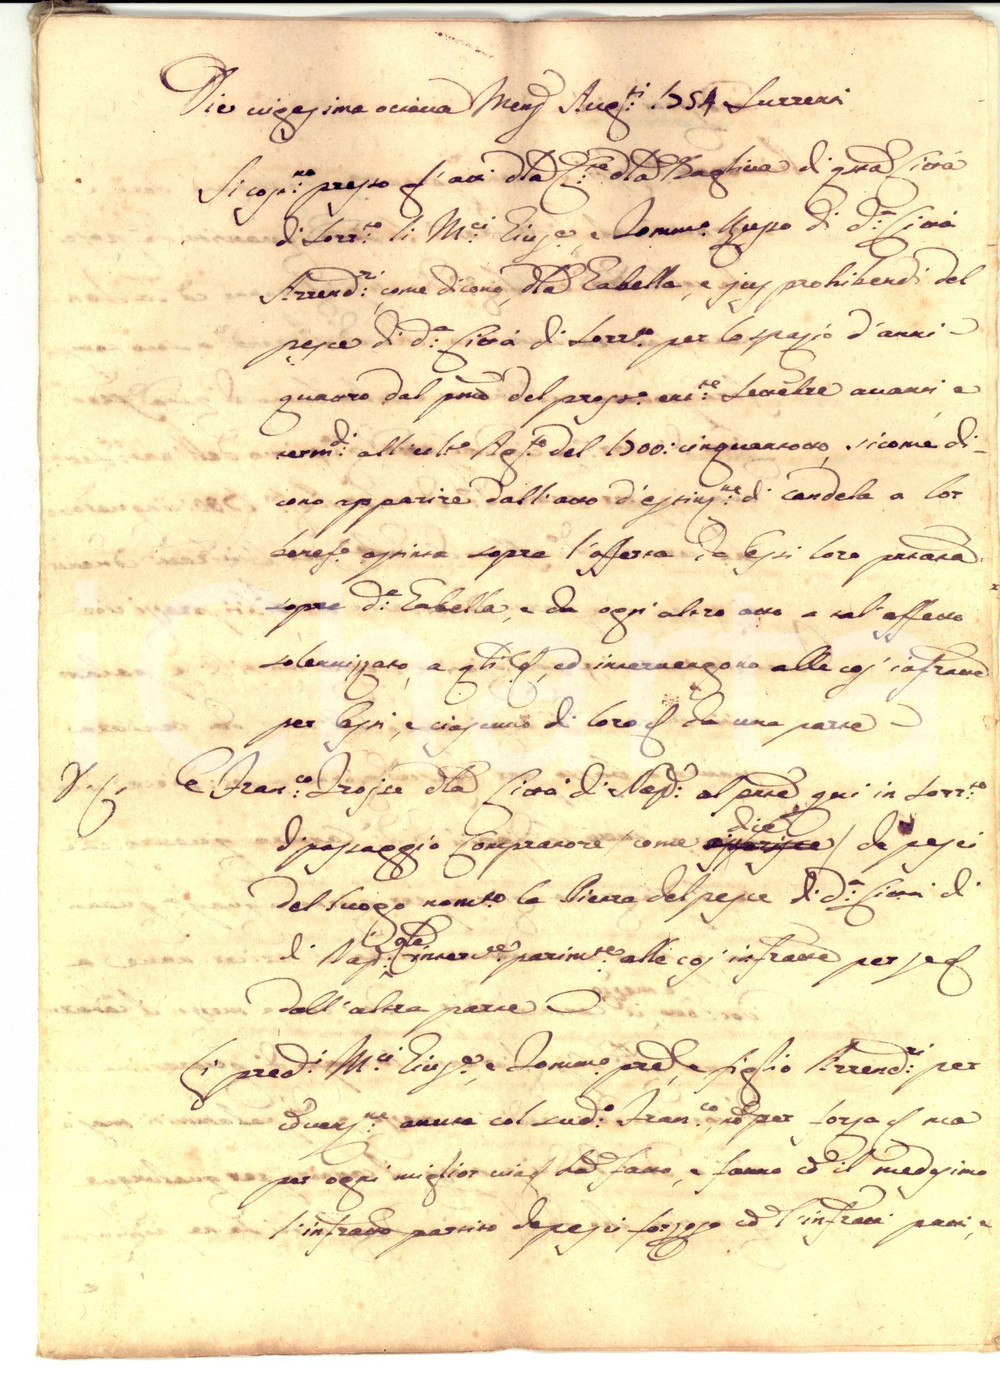 Die vigesima octava Mens Aug:ti 1754 Surrenti
Si cos:no presso l'atti dla C:te dla Bagliva di qsta Città
di Sorr:to li M:ci Gius:e, e Tommo di d:a Città
Arrend:ri, come dicono, dla Gabella, e jus prohibendi del
pesce di d:a Città di Sorr:to per lo spazio d'anni
quattro dal pmo del pross:o ent:te Settebre avanti e
termi:di all'ult:o Ag:to del 1700:cinquantotto, sicome di-
cono apparire dall'atto d'estinz:ne di candela a lor
benef:o estinta sopra l'offerta da essi loro pntata
sopra d:a Gabella, e da ogni altro atto a tal'effetto
solennizzato, a qli &, ed intervengono alle cose infratte
per essi, e ciascuno di loro & da una parte
E Fran:co Troise dla Città di Nap:, al pnte qui in Sorr:to
di passaggio Compratore / come dice / de pesci
del luogo nom:to la Pietra del pesce di d:a Città di
di Nap: qle interv:ne parim:te alle cose infratte per se &
dall'altra parte
Li pred:i M:ci Gius:e, e Tommo pred, e figlio Arrend:ri per
convenz:ne avuta col sud:o Fran:co, non per forza & ma
per ogni miglior via & han fatto, e fanno con il medesimo
l'infratto partito de pesci forzoso con l'infratti patti, e